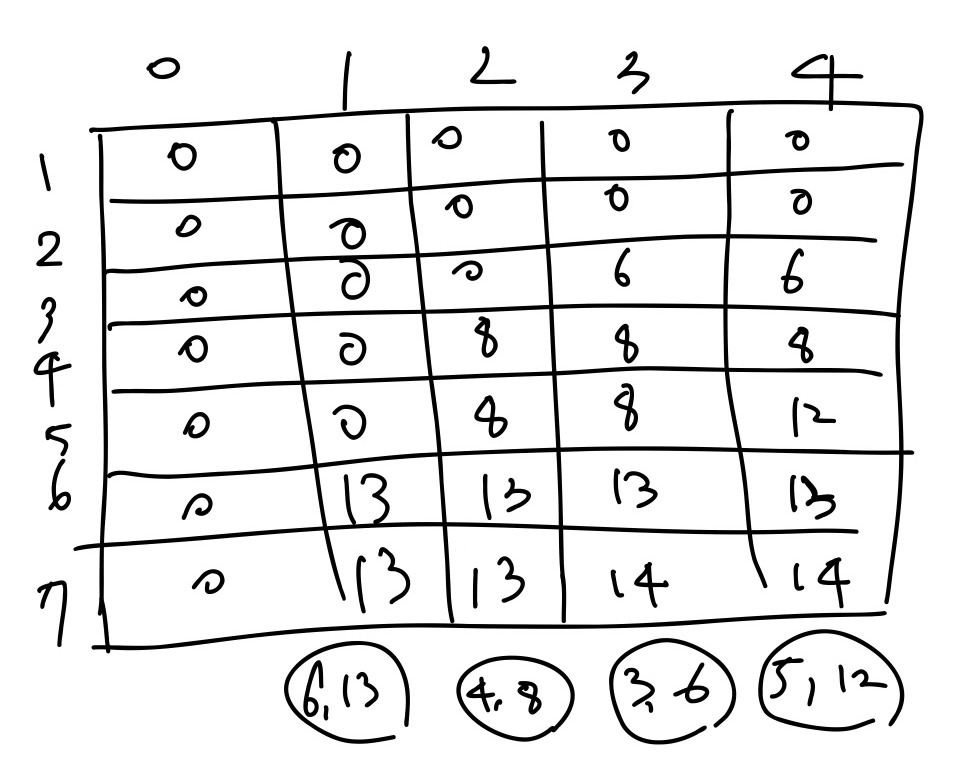 0 1 2 3 4
1 0 0 0 0 0
2 0 0 0 0 0
3 0 0 0 6 6
4 0 0 8 8 8
5 0 0 8 8 12
6 0 13 13 13 13
7 0 13 13 14 14
6,13 4,8 3,6 5,12